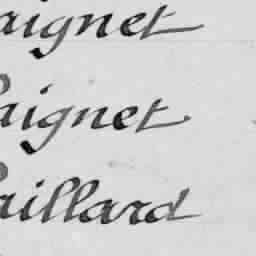 aignet
aignet
aillard